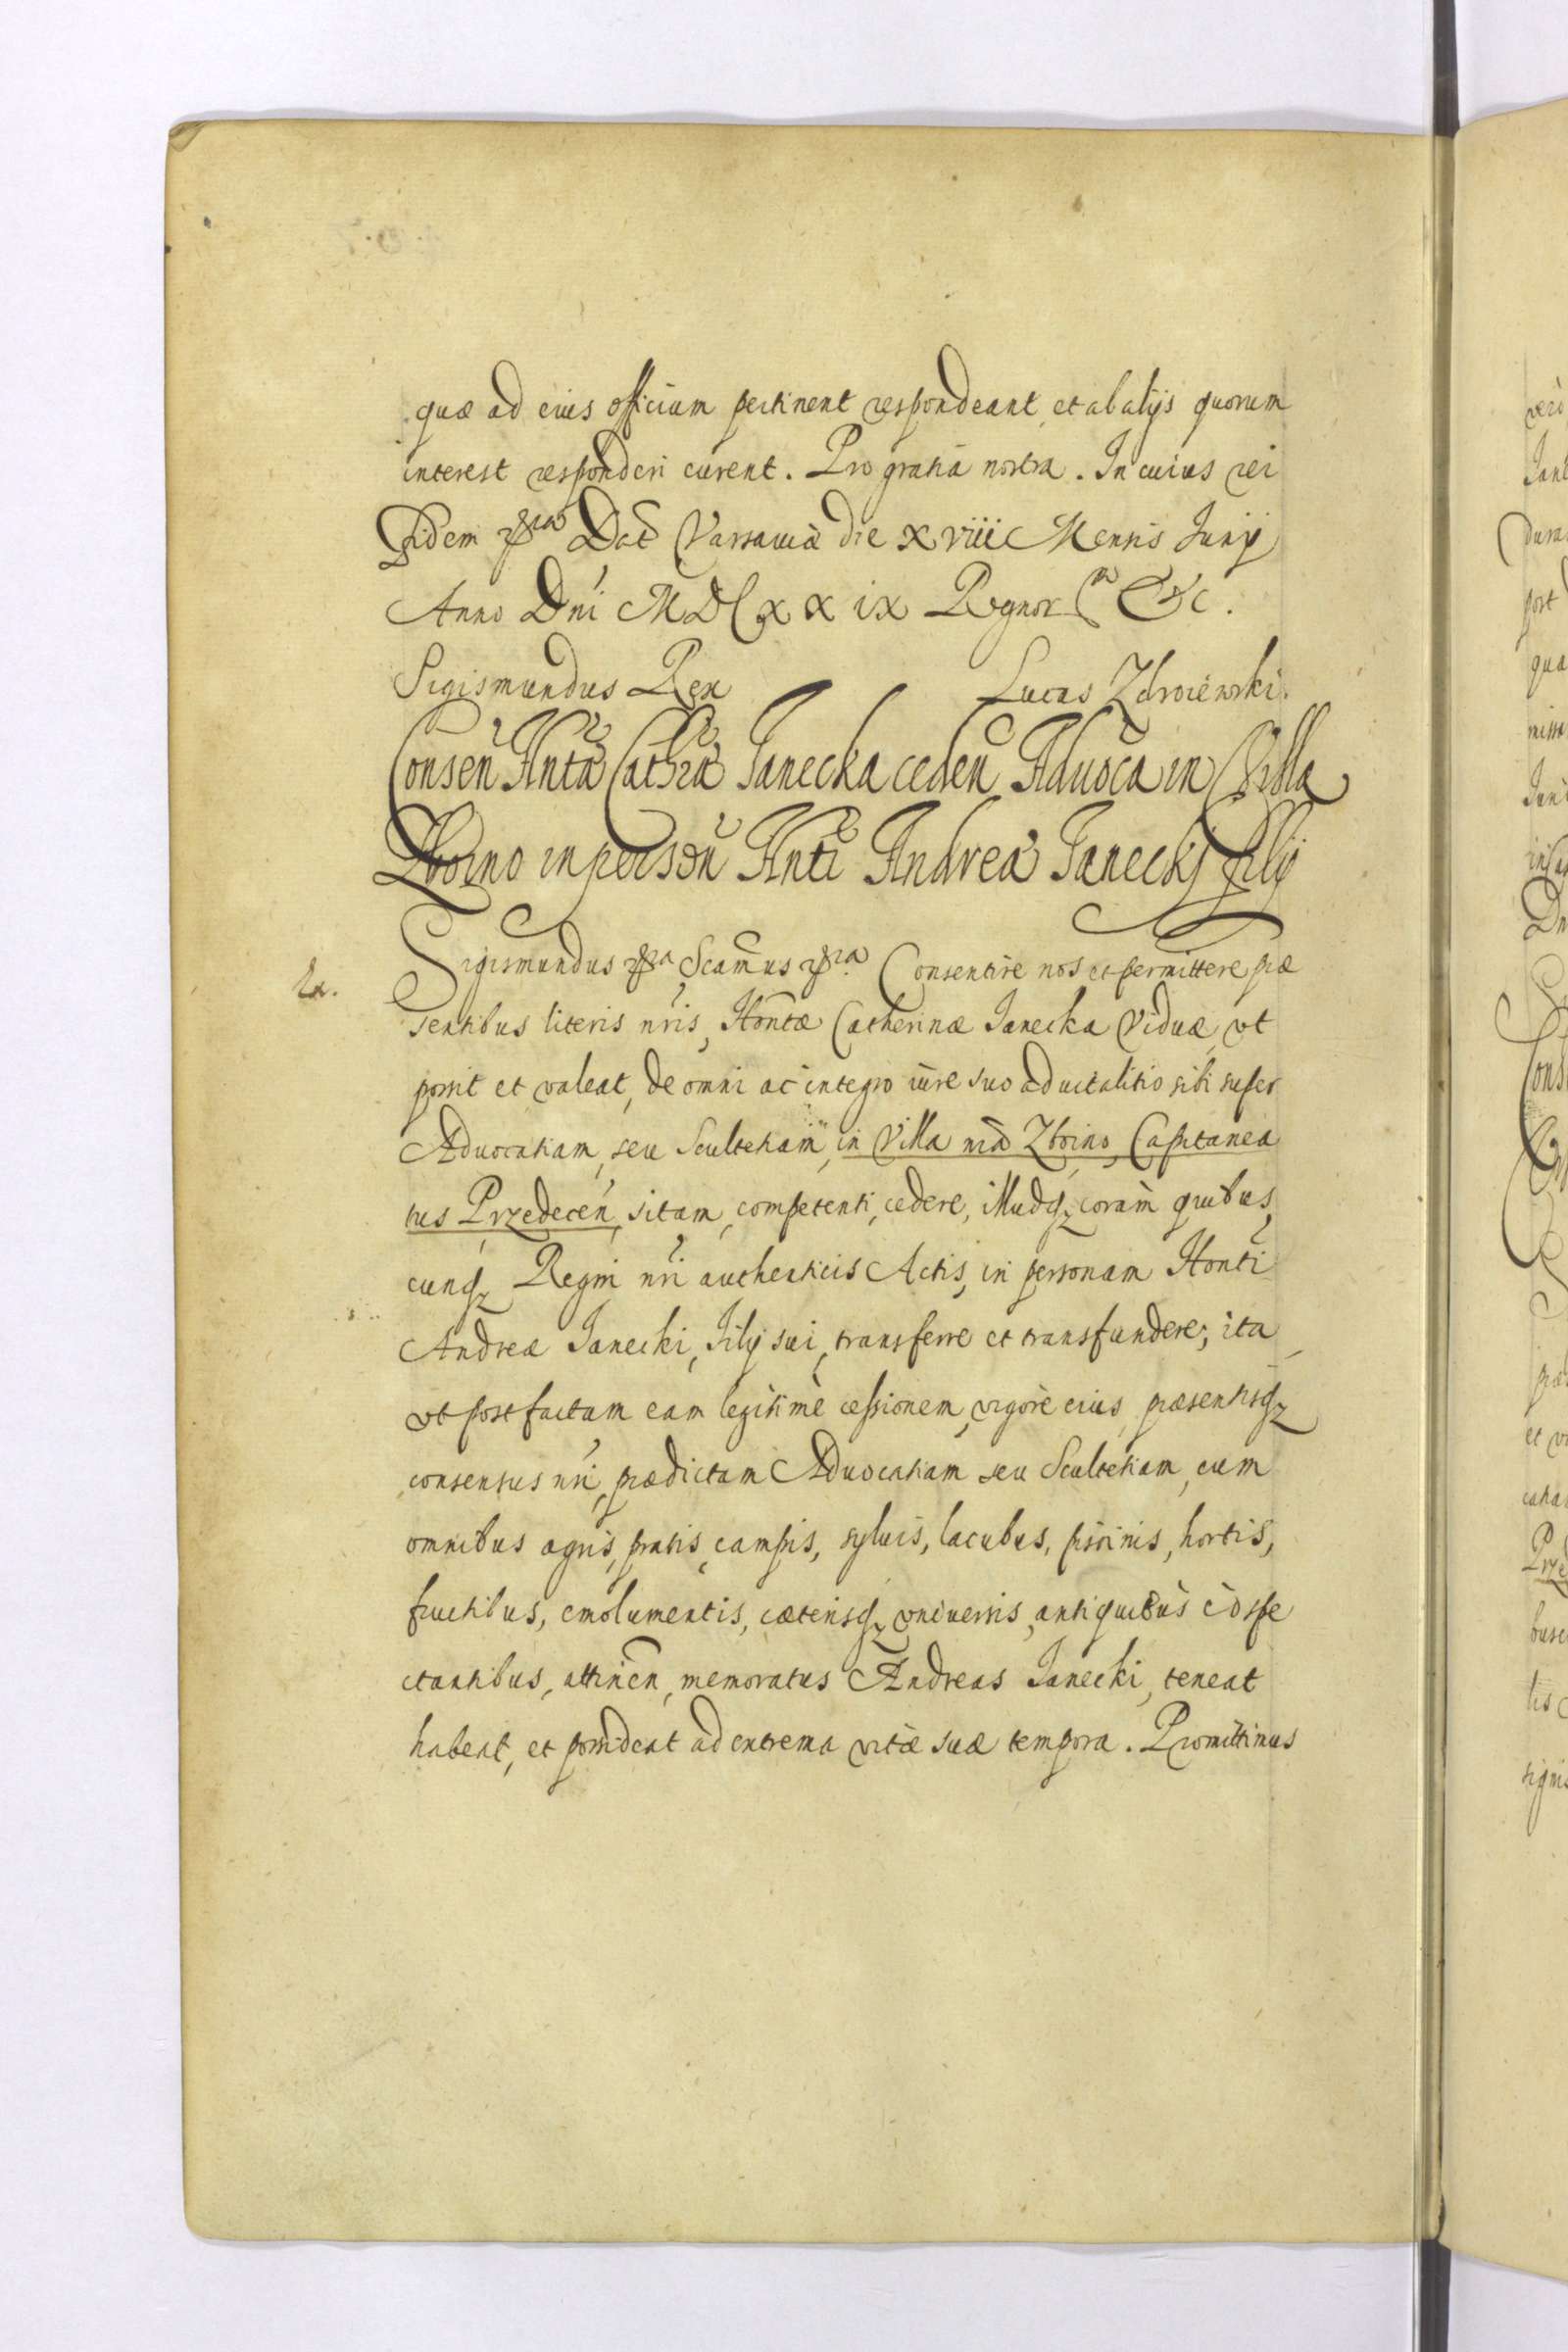 quæ ad eius officium pertinent respondeant, et ab alijs quorum
interest responderi curent. Pro gratia nostra. In cuius rei
fidem Dat Varsauiæ die xviii Mensis Junij
Anno Dni MDCxxix Regnor &c.
Sigismundus Rex Lucas Zdroiewski.
Consen Hntæ Cathræ Janecka ceden Aduoca in Villa
Zboino in person Hnti Andreæ Janeckj filij
Sigismundus Scamus Consentire nos et permittere præ
sentibus literis nris, Hontæ Catherinæ Janecka Viduæ, vt
possit et valeat, de omni ac integro iure suo aduitalitio sibi super
Aduocatiam, seu Scultetiam, in Villa nra Zboino, Capitanea
tus Przedecen, sitam, competenti, cedere, illudq coram quibus,
cunq Regni nri authenticis Actis, in personam Honti
Andreæ Janecki, filij sui, transferre et transfundere; ita
vt post factam eam legitimè cessionem, vigore eius, præsentisq
consensus nri, prædictam Aduocatiam seu Scultetiam, cum
omnibus agris, pratis, campis, syluis, lacubus, piscinis, hortis,
fructibus, emolumentis, cæterisq vniuersis, antiquitùs eò spe
ctantibus, attinen, memoratus Andreas Janecki, teneat
habeat, et possideat ad extrema vitæ suæ tempora. Promittimus